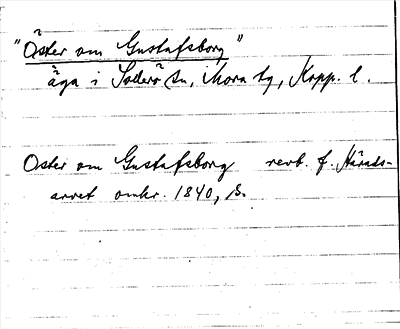 "Öster om Gustafsborg"
äga i Sollerö sn, Mora tg, Kopp. l.
Öster om Gustafsborg revb. f. Härads-
arvet omkr. 1840, s.